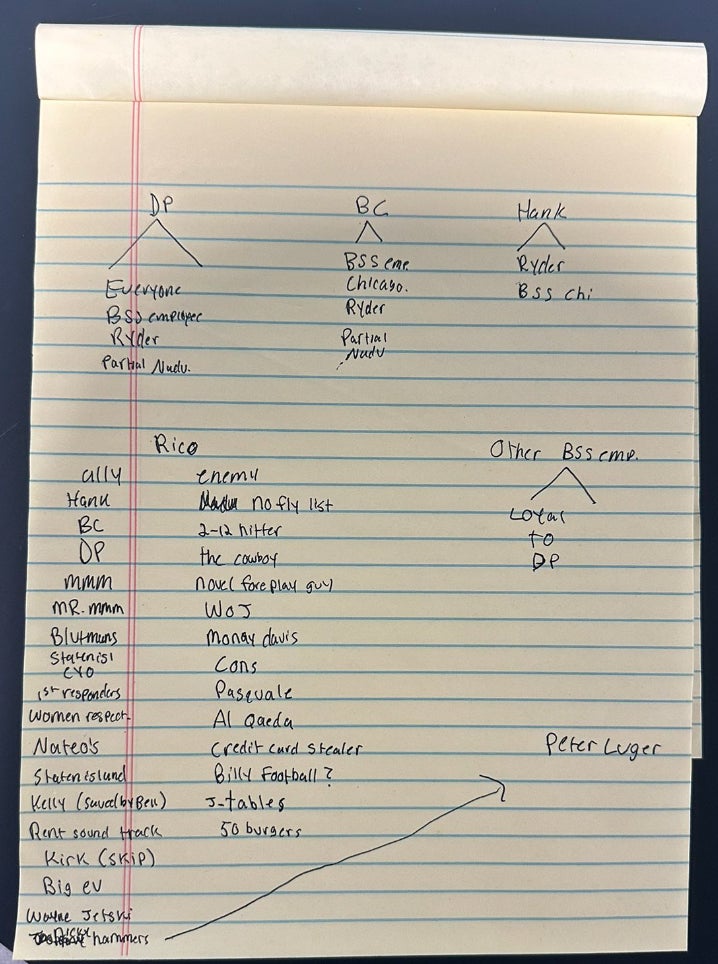 DP
Everyone
BSS employee
Ryder
Partial Nadu.
BC
BSS eme.
Chicago.
Ryder
Partial
Nadu
Hank
Ryder
BSS chi
Rico
ally
Hank
BC
DP
mmm
MR. mmm
Blutmans
Statenisl
CYO
1st responders
Women respect.
Nateo's
Staten island
Kelly (saved by Ben)
Rent sound track
Kirk (skip)
Big ev
Wayne Jetski
hammers
enemy
no fly list
2-12 hitter
the cowboy
novel foreplay guy
WOJ
Monay davis
Cons
Pasquale
Al Qaeda
Credit card stealer
Billy Football?
J-tables
50 burgers
Other BSS emp.
Loyal
to
DP
Peter Luger